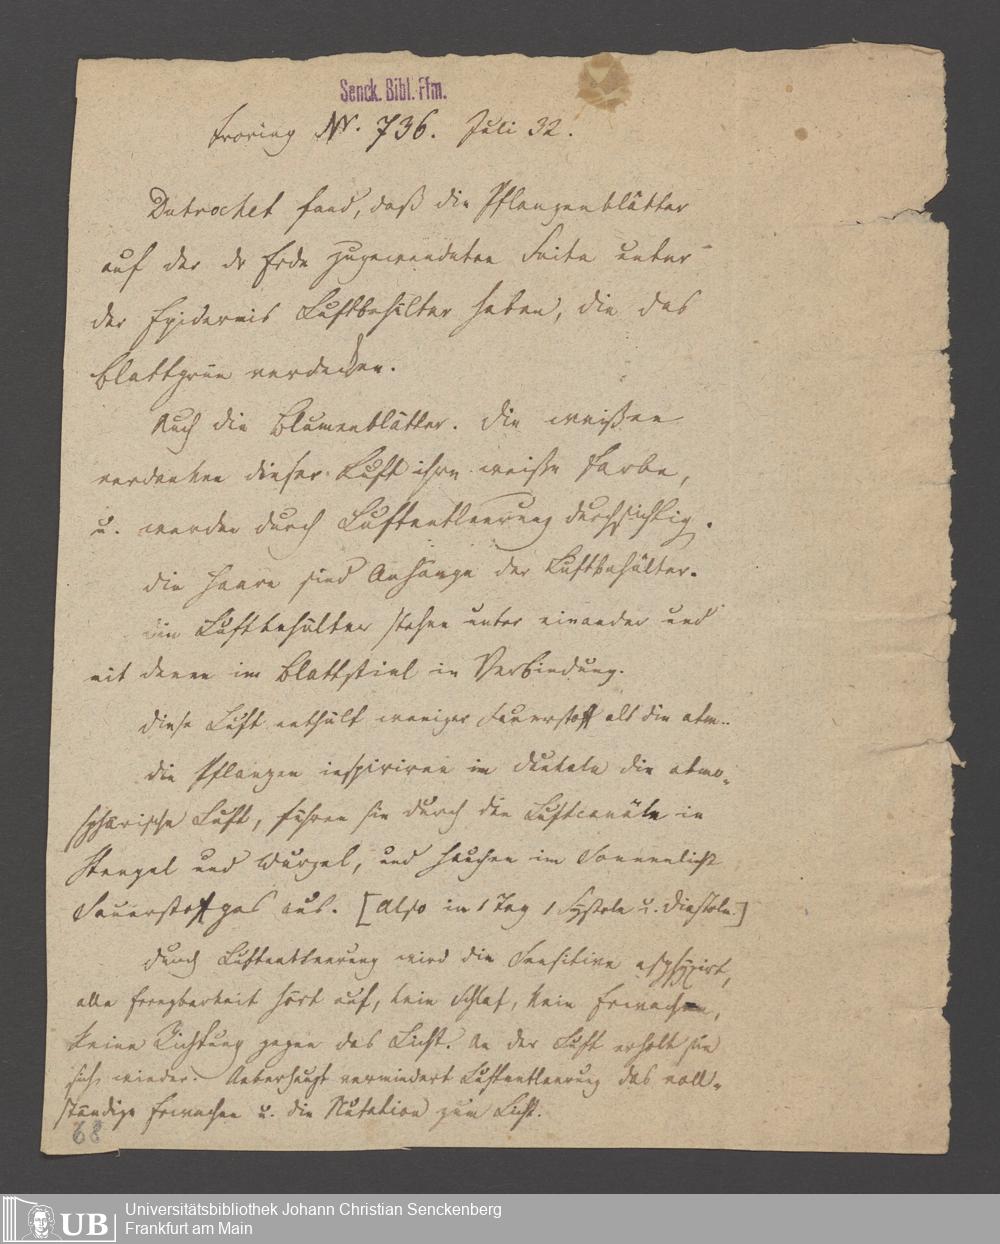 Senck. Bibl. Ffm.
Froriep Nr. 736. Juli 32.
Dutrochet fand, daß die Pflanzenblätter
auf der der Erde zugewendeten Seite unter
der Epidermis Luftbehälter haben, die das
Blattgrün verdecken.
Auch die Blumenblätter. Die weißen
verdanken dieser Luft ihre weiße Farbe,
u. werden durch Luftentleerung durchsichtig.
Die Haare sind Anhänge der Luftbehälter.
Die Luftbehälter stehen unter einander und
mit denen im Blattstiel in Verbindung.
Diese Luft enthält weniger Sauerstoff als die atm..
Die Pflanzen inspiriren im Dunkeln die atmo-
sphärische Luft, führen sie durch die Luftcanäle in
Stengel und Wurzel, und hauchen im Sonnenlicht
Sauerstoffgas aus. [Also in 1 Tag 1 Systole u. Diastole.]
Durch Luftentleerung wird die Sensitive asphyxirt,
alle Erregbarkeit hört auf, kein Schlaf, kein Erwachen,
keine Richtung gegen das Licht. An der Luft erholt sie
sich wieder. Ueberhaupt vermindert Luftentleerung das voll-
ständige Erwachen u. die Nutation zum Licht.
68
UB
Universitätsbibliothek Johann Christian Senckenberg
Frankfurt am Main